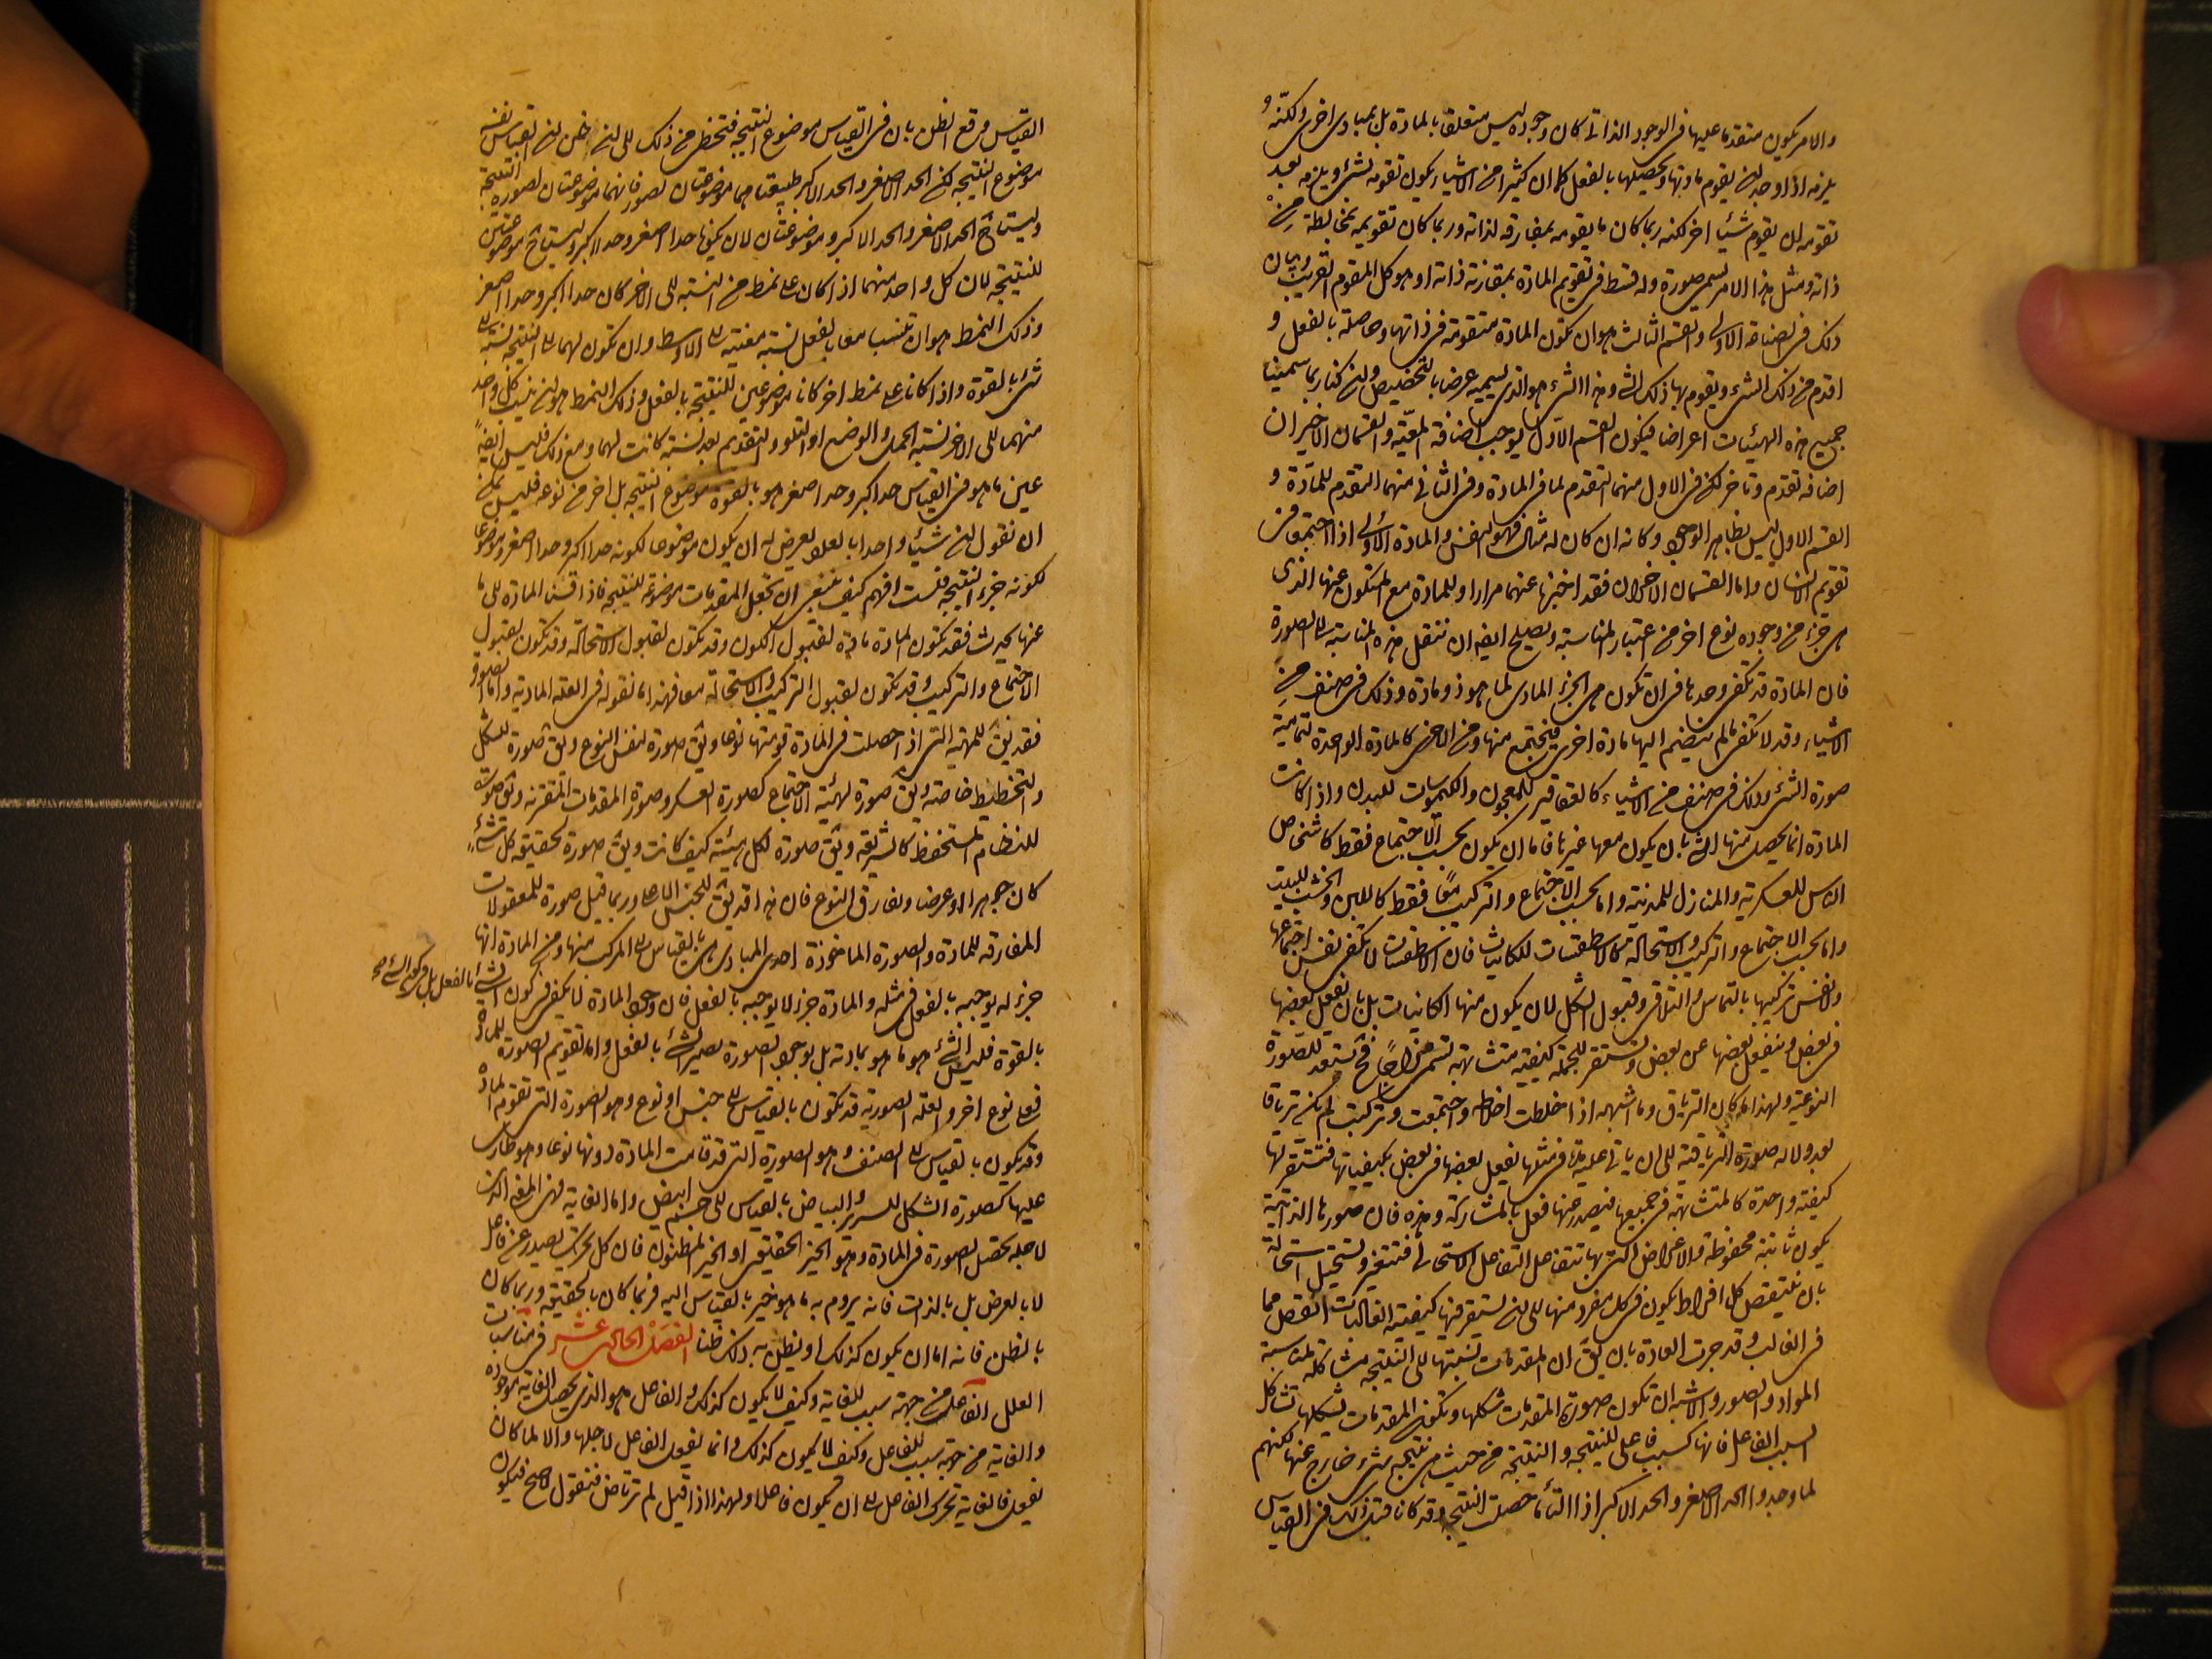 والامر يكون متقدما عليها في الوجود الذاتي كان وجوده ليس متعلقا بالمادة بل بمبادى اخرى ولكنه
يلزمه اذا وجد ان يقوم مادتها ويحصلها بالفعل كما ان كثيرا من الاشياء يكون تقومه بشئ ويلزمه بعد
تقومه ان يقوم شيئا اخر لكنه ربما كان ما يقومه بمفارقة لذاته وربما كان تقويمه بمخالطة من
ذاته ومثل هذا الامر يسمى صورة وله قسط في تقويم المادة بمقارنة ذاته او هو كل المقوم القريب وبيان
ذلك في الصناعة الاولى والقسم الثالث هو ان تكون المادة متقومة في ذاتها وحاصلة بالفعل و
اقدم من ذلك الشئ ويقوم بها ذلك الشئ وهذا الشئ هو الذي نسميه عرضا بالتخصيص وان كنا ربما سمينا
جميع هذه الهيئات اعراضا فيكون القسم الاول يوجب اضافة المعية والقسمان الاخيران
اضافة تقدم وتاخر لكن في الاول منهما التقدم لما في المادة وفي الثاني منهما التقدم للمادة و
القسم الاول ليس بظاهر الوجود وكانه ان كان له مثال فهو النفس والمادة الاولى اذا اجتمعتا في
تقويم الانسان واما القسمان الاخران فقد اخبرنا عنهما مرارا وللمادة مع المتكون عنها الذي
هي جزء من وجوده نوع اخر من اعتبار المناسبة ويصلح ايضا ان ننقل هذه المناسبة الى الصورة
فان المادة قد تكفي وحدها في ان تكون هي الجزء المادي لما هو ذو مادة وذلك في صنف من
الاشياء وقد لا تكفي ما لم ينضم اليها مادة اخرى فيجتمع منها ومن الاخرى كالمادة الواحدة لتمامية
صورة الشئ وذلك في صنف من الاشياء كالعقاقير للمعجون والكيموسات للبدن واذا كانت
المادة انما يحصل منها الشئ بان يكون معها غيرها فاما ان يكون بحسب الاجتماع فقط كاشخاص
الناس للعسكرية والمنازل للمدينة واما بحسب الاجتماع والتركيب معا فقط كاللبن والخشب للبيت
واما بحسب الاجتماع والتركيب والاستحالة كالاسطقسات للكائنات فان الاسطقسات لا تكفي نفس اجتماعها
ولا نفس تركيبها بالتماس والتلاقي وقبول الشكل لان يكون منها الكائنات بل بان يفعل بعضها
في بعض وينفعل بعضها عن بعض وتستقر للجملة كيفية متشابهة تسمى مزاجا فح تستعد للصورة
النوعية ولهذا ما كان الترياق وما اشبهه اذا خلطت اخلاطه واجتمعت وتركبت لم يكن ترياقا
بعد ولا له صورة الترياقية الى ان ياتي عليه مدة في مثلها يفعل بعضها في بعض بكيفياتها فتستقر لها
كيفية واحدة كالمتشابهة في جميعها فيصدر عنها فعل بالمشاركة وهذه فان صورها الذاتية
يكون ثابتة محفوظة والاعراض التي بها تتفاعل التفاعل الاستحالي فتتغير وتستحيل استحالة
بان ينتقص كل افراط يكون في كل مفرد منها الى ان يستقر فيها كيفية الغالبات انقص مما
في الغالب وقد جرت العادة بان يق ان المقدمات نسبتها الى النتيجة مشاكلة لمناسبة
المواد والصور والاشبه ان تكون صورة المقدمات شكلها وتكون المقدمات بشكلها تشاكل
السبب الفاعل فانها كسبب فاعلى للنتيجة والنتيجة من حيث هي نتيجة شئ خارج عنها لكنهم
لما وجدوا الحد الاصغر والحد الاكبر اذا التأما حصلت النتيجة وقد كانا قبل ذلك في القياس
القياس وقع الظن بان في القياس موضوع النتيجة فتخطى من ذلك الى ان ظن ان القياس نفسه
موضوع النتيجة لكن الحد الاصغر والحد الاكبر طبيعتاهما موضوعتان لصور فانهما موضوعتان لصورة النتيجة
وليستا هما الحد الاصغر والحد الاكبر وموضوعتان لان يكونا حدا اصغر وحدا اكبر وليستا هما موضوعتين
للنتيجة لان كل واحد منهما اذا كان على نمط من النسبة الى الاخر كان حدا اكبر وحدا اصغر
وذلك النمط هو ان تنسب معا بالفعل نسبة معينة الى الاوسط وان تكون لهما الى النتيجة نسبة الى
شئ بالقوة واذا كانا على نمط اخر كانا موضوعين للنتيجة بالفعل وذلك النمط هو ان ينسب كل واحد
منهما الى الاخر نسبة الحمل والوضع او التلو والتقديم بعد نسبة كانت لهما ومع ذلك فليس ايضا
عين ما هو في القياس حدا اكبر وحدا اصغر هو بالقوة موضوع النتيجة بل اخر من نوعه فليس يمكن
ان نقول ان شيئا واحدا بالعدد يعرض له ان يكون موضوعا لكونه حدا اكبر وحدا اصغر وموضوعا
لكونه جزء النتيجة فلست افهم كيف ينبغي ان تجعل المقدمات موضوعة للنتيجة فاذا قسنا المادة الى ما
عنها يحدث فقد تكون المادة مادة لقبول الكون وقد تكون لقبول الاستحالة وقد تكون لقبول
الاجتماع والتركيب وقد تكون لقبول التركيب والاستحالة معا فهذا ما نقوله في العلة المادية واما الصورة
فقد يق للمهية التي اذا حصلت في المادة قومتها نوعا ويق صورة لنفس النوع ويق صورة للشكل
والتخطيط خاصة ويق صورة لهيئة الاجتماع كصورة العسكر وصورة المقدمات المقترنة ويق صورة
للنظام المستحفظ كالشريعة ويق صورة لكل هيئة كيف كانت ويق صورة لحقيقة كل شئ
كان جوهرا او عرضا ويفارق النوع فان هذا قد يق للجنس الاعلى وربما قيل صورة للمعقولات
المفارقة للمادة والصورة الماخوذة احدى المبادى هي بالقياس الى المركب منها ومن المادة انها
جزء له يوجبه بالفعل في مثله والمادة جزء لا يوجبه بالفعل فان وجود المادة لا يكفي في كون الشئ
بالفعل بل في كون الشئ
بالقوة فليس الشئ هو ما هو بمادته بل بوجود الصورة يصير الشئ بالفعل واما تقويم الصورة للمادة
فعلى نوع اخر والعلة الصورية قد تكون بالقياس الى جنس او نوع وهو الصورة التي تقوم المادة
وقد يكون بالقياس الى الصنف وهو الصورة التي قد قامت المادة دونها نوعا وهو طار
عليها كصورة الشكل للسرير والبياض بالقياس الى جسم ابيض واما الغاية فهي المعنى الذي
لاجله تحصل الصورة في المادة وهو الخير الحقيقي او الخير المظنون فان كل تحريك يصدر عن فاعل
لا بالعرض بل بالذات فانه يروم به ما هو خير بالقياس اليه فربما كان بالحقيقة وربما كان
بالظن فانه اما ان يكون كذلك او يظن به ذلك ظنا الفصل الحادى عشر في مناسبات
العلل الفاعل من جهة سبب للغاية وكيف لا يكون كذلك والفاعل هو الذي يحصل الغاية موجودة
والغاية من جهة سبب للفاعل وكيف لا يكون كذلك وانما يفعل الفاعل لاجلها والا لما كان
يفعل فالغاية تحرك الفاعل الى ان يكون فاعلا ولهذا اذا قيل لم ترتاض فنقول لاصح فيكون